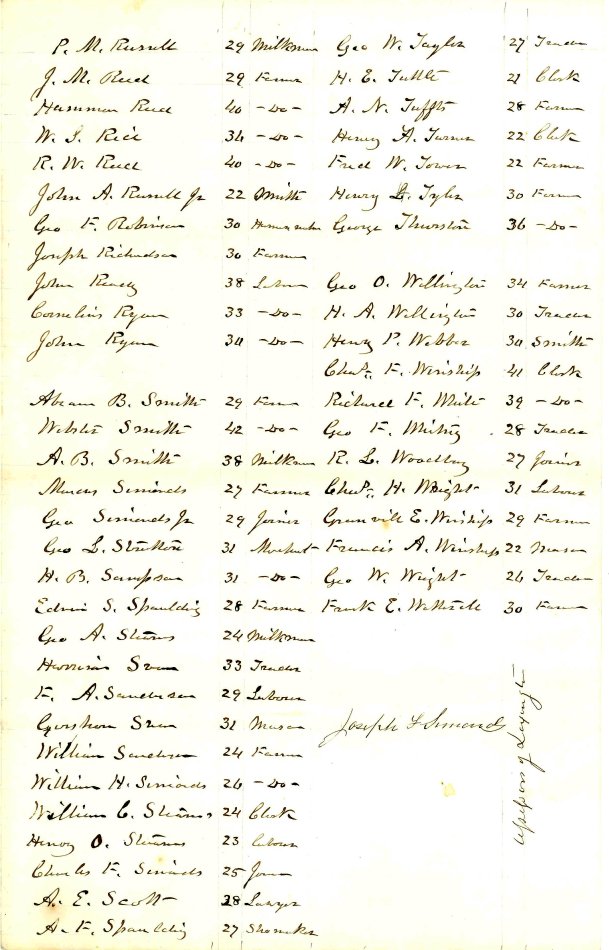 P. M. Russell 29 Milkman
J. M. Reed 29 Farmer
Hammon Reed 40 -Do-
W. I. Rice 34 -Do-
R. W. Reed 40 -Do-
John A. Russell Jr 22 Smith
Geo F. Robinson 30
Joseph Richardson 30 Farmer
John Ready 38 Labor
Cornelius Ryan 33 -Do-
John Ryan 30 -Do-
Abram B. Smith 29 Farmer
Webster Smith 42 -Do-
A. B. Smith 38 Milkman
Marcus Simonds 27 Farmer
Geo Simonds Jr 29 Joiner
Geo L. Stratton 31
H. B. Sampson 31 -Do-
Edwin S. Spaulding 28 Farmer
Geo A. Stearns 24 Milkman
Harrison Swan 33 Trader
F. A. Sanderson 29 Labour
Gershom Swan 31 Mason
William Sanderson 24 Farmer
William H. Simonds 26 -Do-
William C. Stearns 24 Clerk
Henry O. Stearns 23 Labour
Charles F. Simonds 25
A. E. Scott 28 Lawyer
A. F. Spaulding 27 Shomaker
Geo W. Taylor 27 Trader
H. E. Tuttle 21 Clerk
A. N. Tuffts 28 Farmer
Henry A. Turner 22 Clerk
Fred W. Tower 22 Farmer
Henry L. Tyler 30 Farmer
George Thurston 36 -Do-
Geo O. Wellington 34 Farmer
H. A. Wellington 30 Trader
Henry P. Webber 30 Smith
Chas. F. Winship 41 Clerk
Richard F. White 39 -Do-
Geo F. Whitney 28 Trader
R. L. Woodbury 27 Joiner
Chas. H. Wright 31 Labour
Granvill E. Winship 29 Farmer
Francis A. Winships 22 Mason
Geo W. Wright 26 Trader
Frank E. Wetherell 30 Farmer
Joseph F Simonds
Assessors of Lexington